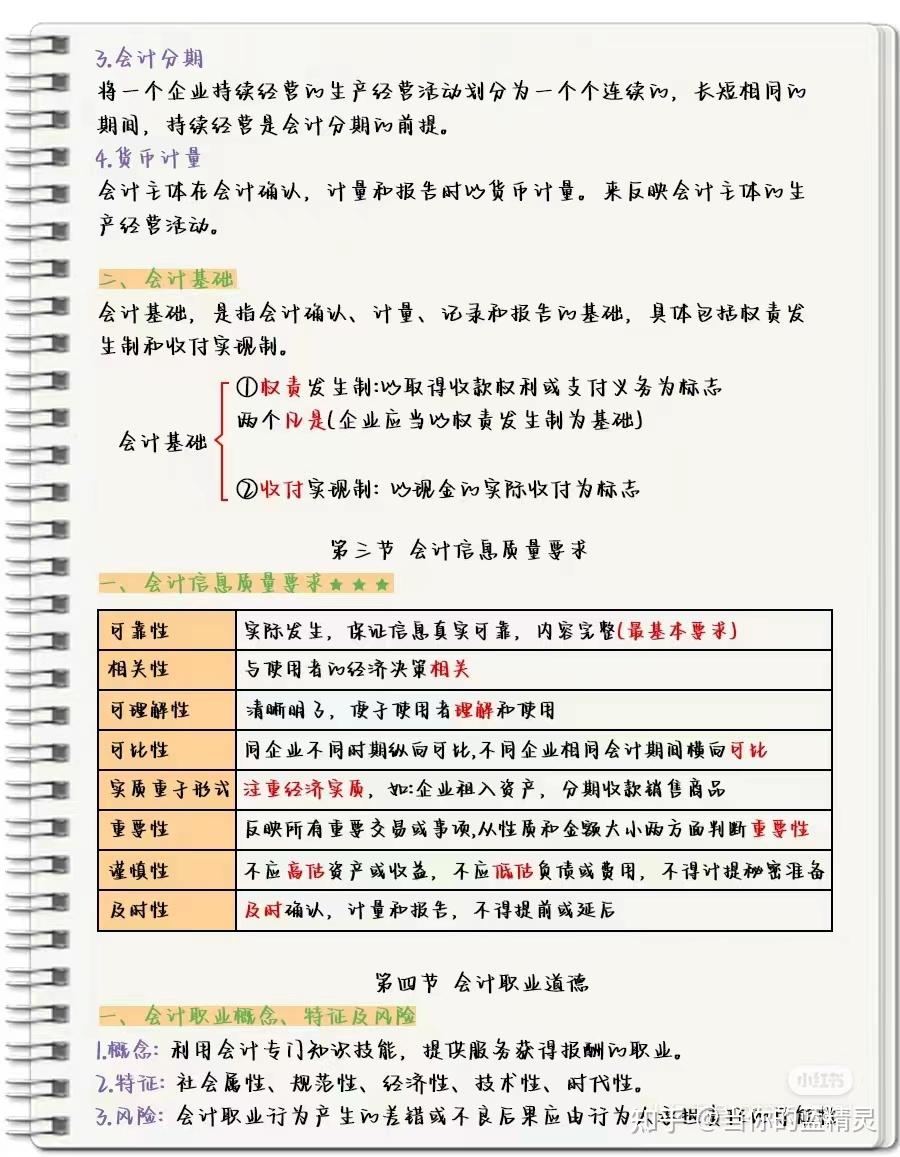 3.会计分期
将一个企业持续经营的生产经营活动划分为一个个连续的，长短相同的
期间，持续经营是会计分期的前提。
4.货币计量
会计主体在会计确认，计量和报告时以货币计量。来反映会计主体的生
产经营活动。
二、会计基础
会计基础，是指会计确认、计量、记录和报告的基础，具体包括权责发
生制和收付实现制。
会计基础
①权责发生制:以取得收款权利或支付义务为标志
两个凡是(企业应当以权责发生制为基础)
②收付实现制: 以现金的实际收付为标志
第三节 会计信息质量要求
一、会计信息质量要求★★★
可靠性 实际发生，保证信息真实可靠，内容完整(最基本要求)
相关性 与使用者的经济决策相关
可理解性 清晰明了，便于使用者理解和使用
可比性 同企业不同时期纵向可比,不同企业相同会计期间横向可比
实质重于形式 注重经济实质，如:企业租入资产，分期收款销售商品
重要性 反映所有重要交易或事项,从性质和金额大小两方面判断重要性
谨慎性 不应高估资产或收益，不应低估负债或费用，不得计提秘密准备
及时性 及时确认，计量和报告，不得提前或延后
第四节 会计职业道德
一、会计职业概念、特征及风险
1.概念: 利用会计专门知识技能，提供服务获得报酬的职业。
2.特征: 社会属性、规范性、经济性、技术性、时代性。
小红书
3.风险: 会计职业行为产生的差错或不良后果应由行为
知乎 @当你的蓝精灵